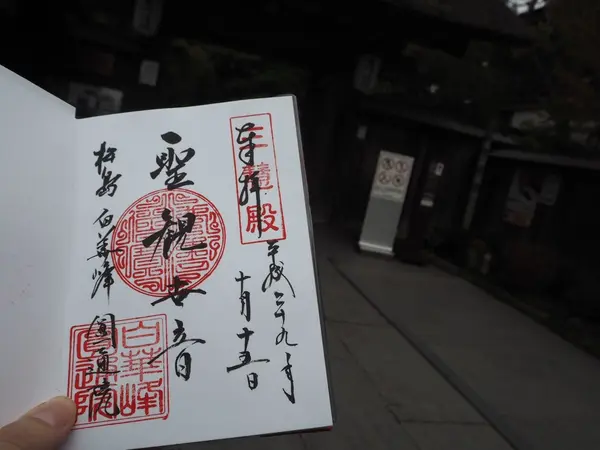 奉拝
三慧殿
平成二十九年
十月十五日
聖観世音
松島 白華峰 圓通院
白華峰
圓通院